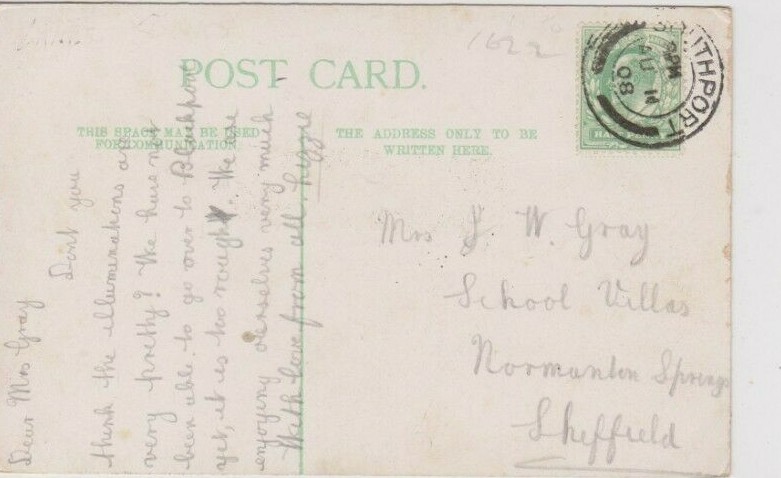 1622
POST CARD.
THIS SPACE MAY BE USED
FOR COMMUNICATION.
THE ADDRESS ONLY TO BE
WRITTEN HERE.
SOUTHPORT
PM
AU 11
08
HALF PENNY
Dear Mrs Gray
Dont you
think the illuminations are
very pretty? We have not
been able to go over to Blackpool
yet, it is too rough. We are
enjoying ourselves very much
With love from all. Lizzie
Mrs J W. Gray
School Villas
Normanton Springs
Sheffield